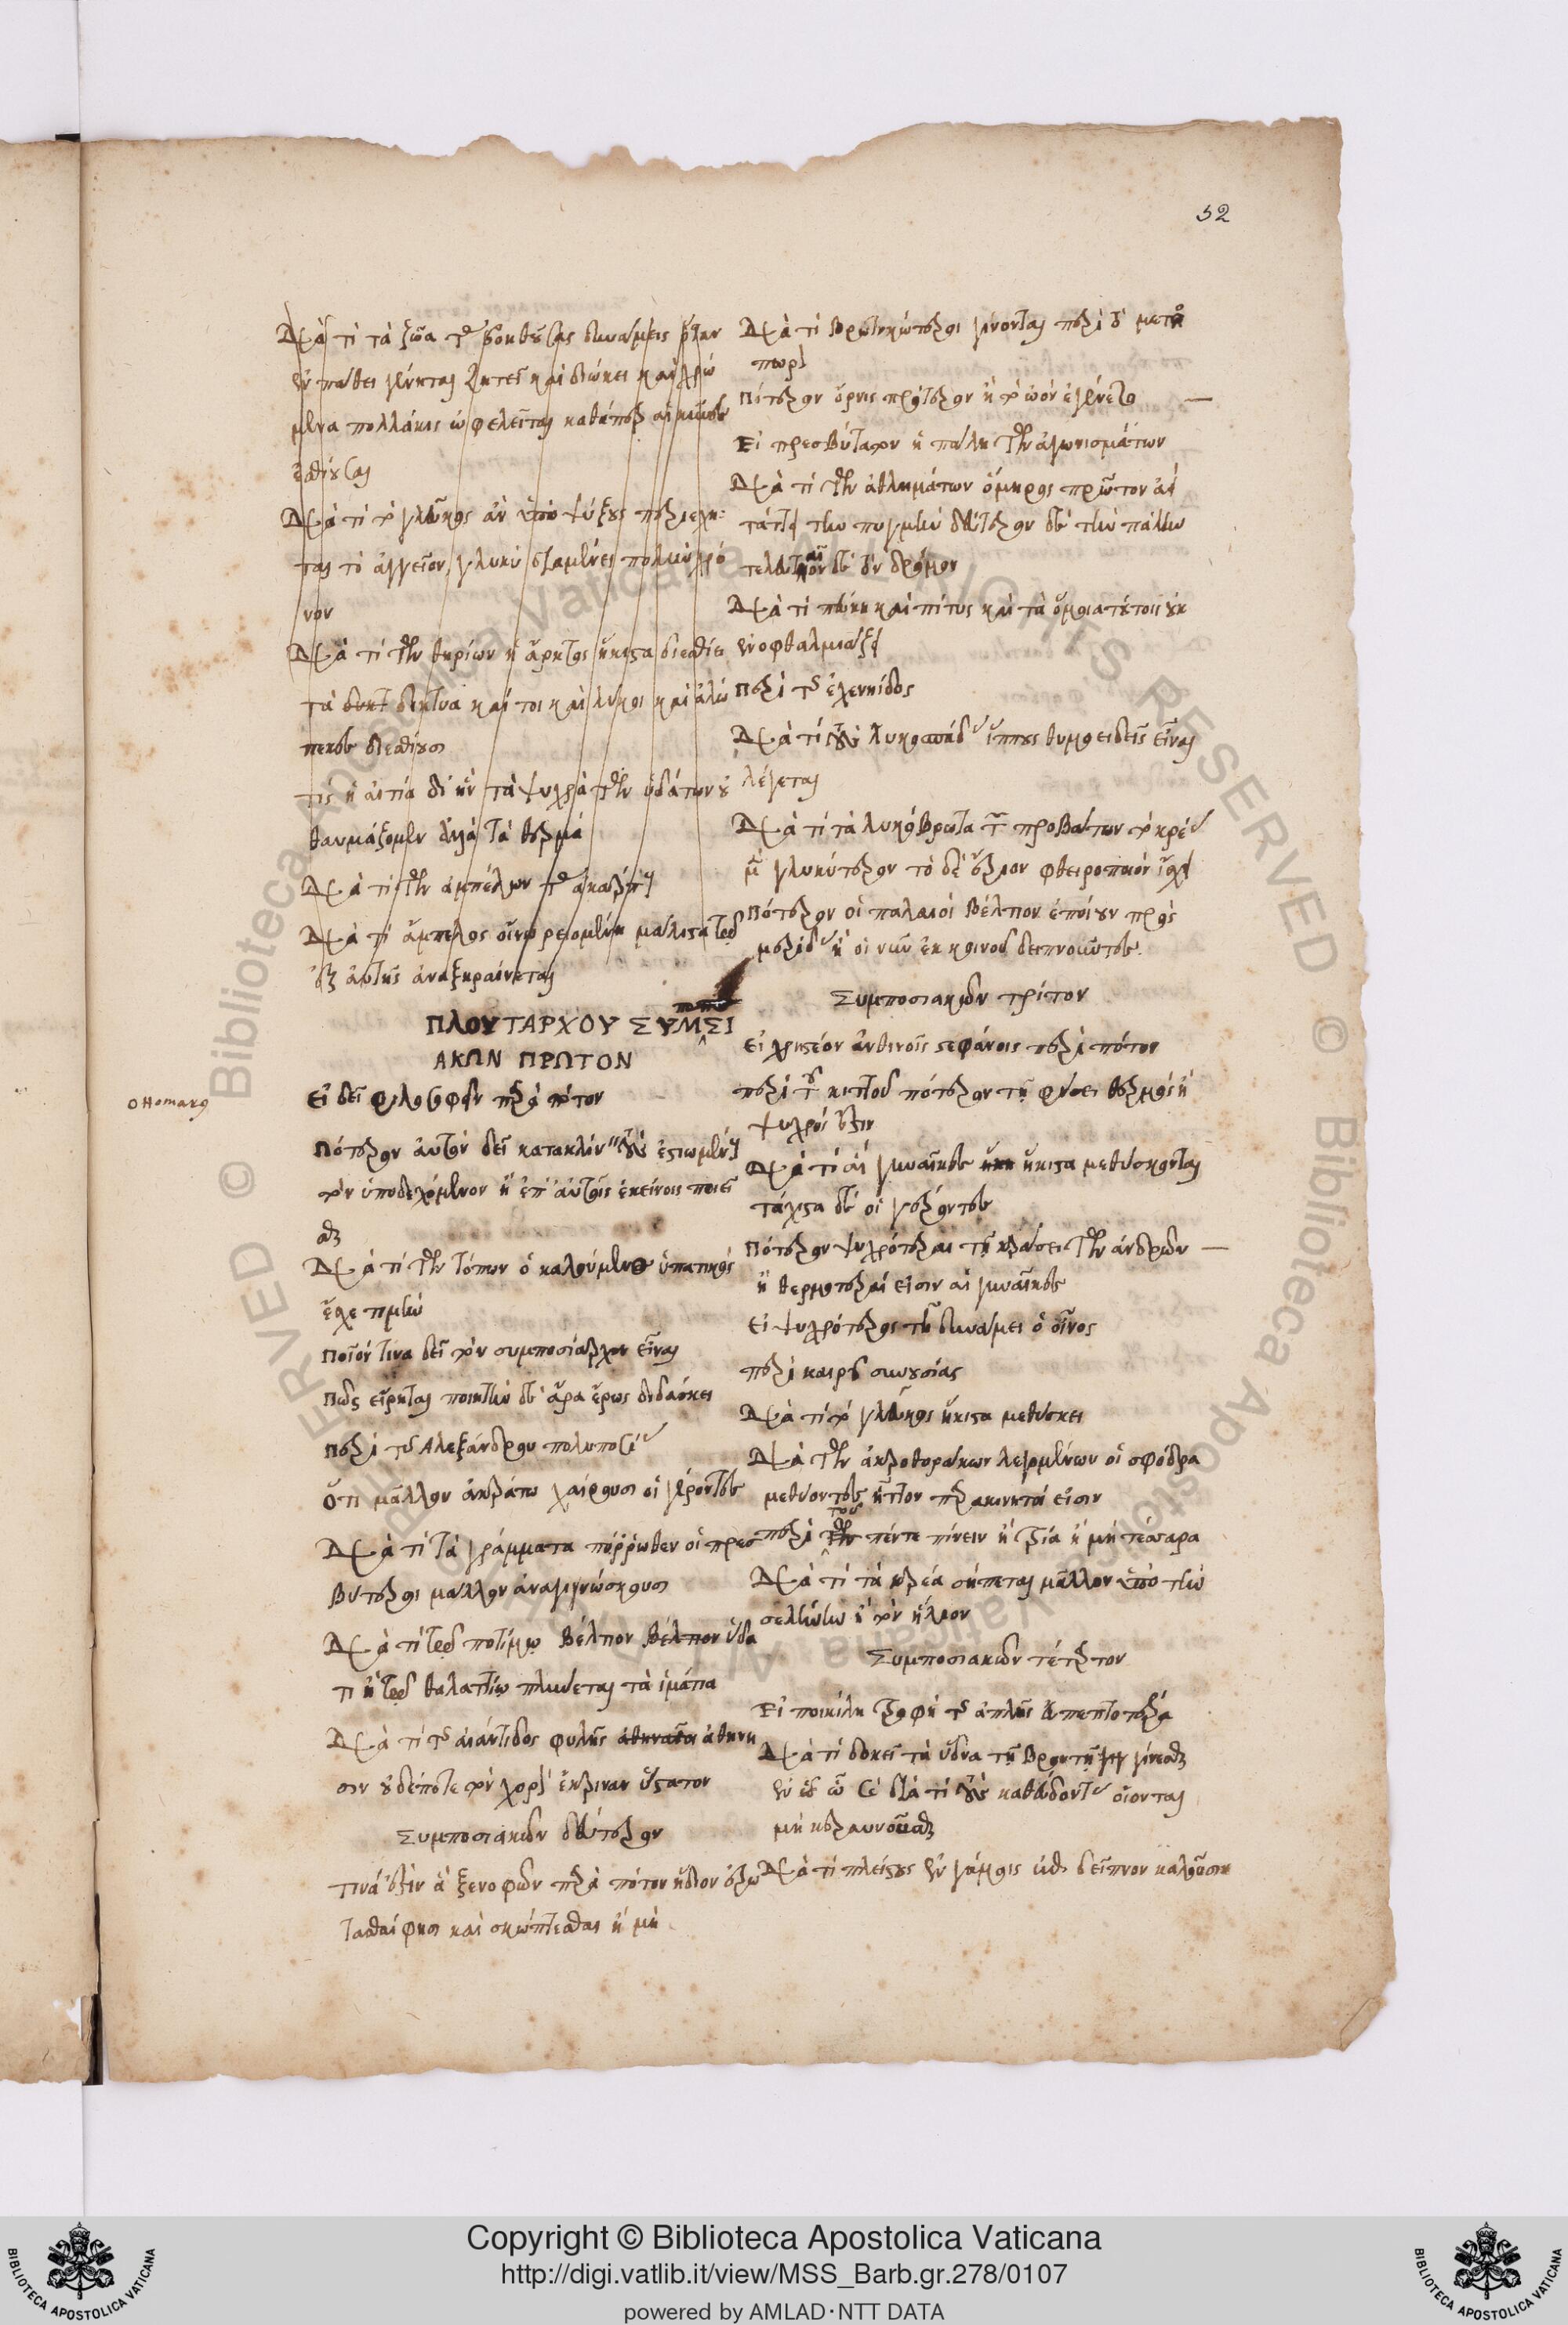 52
Διὰ τί τὰ ζῶα τὰς βοηθούσας δυνάμεις ὅταν
ἐν πάθει γένηται ζητεῖ καὶ διώκει καὶ χρώ
μενα πολλάκις ὠφελεῖται καθάπερ αἱ κύνες
ἐσθίουσαι
Διὰ τί τὸ γλεῦκος ἂν ὑπὸ ψύξους περιέχη=
ται τὸ ἀγγεῖον, γλυκὺ διαμένει πολὺν χρό
νον
Διὰ τί τῶν θηρίων ἡ ἄρκτος ἥκιστα διεσθίει
τὰ δίκτυα καί τοι καὶ λύκοι καὶ ἀλώ
πεκες διεσθίουσι
τίς ἡ αἰτία δι' ἣν τὰ ψυχρὰ τῶν ὑδάτων οὐ
θαυμάζομεν ἀλλὰ τὰ θερμά
Διὰ τί τῶν ἀμπέλων
Διὰ τί ἄμπελος οἴνῳ ῥαινομένη μάλιστα τῷ
ἐξ αὐτῆς ἀναξηραίνεται
ΠΛΟΥΤΑΡΧΟΥ ΣΥΜΣΙ
ΑΚΩΝ ΠΡΩΤΟΝ
Ottomano
Εἰ δεῖ φιλοσοφεῖν παρὰ πότον
Πότερον αὐτὸν δεῖ κατακλίνειν τοὺς ἑστιωμένους
τὸν ὑποδεχόμενον ἢ ἐπ' αὐτοῖς ἐκείνοις ποιεῖ
σθαι
Διὰ τί τῶν τόπων ὁ καλούμενος ὑπατικὸς
ἔσχε τιμήν
Ποῖόν τινα δεῖ τὸν συμποσίαρχον εἶναι
Πῶς εἴρηται ποιητὴν δὲ ἄρα ἔρως διδάσκει
Περὶ τῆς Αλεξάνδρου πολυποσίας
Ὅτι μᾶλλον ἀκράτῳ χαίρουσι οἱ γέροντες
Διὰ τί τὰ γράμματα πόρρωθεν οἱ πρεσ
βύτεροι μᾶλλον ἀναγιγνώσκουσι
Διὰ τί τῷ ποτίμῳ βέλτιον βέλτιον ὕδα
τι ἢ τῷ θαλαττίῳ πλύνεται τὰ ἱμάτια
Διὰ τί τῆς αἰαντίδος φυλῆς ἀθηναῖοι ἀθήνη
σιν οὐδέποτε τὸν χορὸν ἔκριναν ὕστατον
Συμποσιακῶν δεύτερον
τινά ἐστιν ἃ ξενοφῶν παρὰ πότον ἥδιον ἐρω
τᾶσθαί φησι καὶ σκώπτεσθαι ἢ μὴ
Διὰ τί βρωτικώτεροι γίνονται περὶ τὸ μετό
πωρον
Πότερον ὄρνις πρότερον ἢ τὸ ὠὸν ἐγένετο —
Εἰ πρεσβύτατον ἡ πάλη τῶν ἀγωνισμάτων
Διὰ τί τῶν ἀθλημάτων ὅμηρος πρῶτον ἀεὶ
τάττει τὴν πυγμὴν δεύτερον δὲ τὴν πάλην
τελευταῖον δὲ τὸν δρόμον
Διὰ τί πεύκη καὶ πίτυς καὶ τὰ ὅμοια τούτοις οὐκ
ἐνοφθαλμιάζεται
Περὶ τῆς ἐχενηίδος
Διὰ τί τοὺς λυκοσπάδας ἵππους θυμοειδεῖς εἶναι
λέγεται
Διὰ τί τὰ λυκόβρωτα τῶν προβάτων τὸ κρέας
μὲν γλυκύτερον τὸ δὲ ἔριον φθειροποιὸν ἴσχει
Πότερον οἱ παλαιοὶ βέλτιον ἐποίουν πρὸς
μερίδας ἢ οἱ νῦν ἐκ κοινοῦ δειπνοῦντες.
Συμποσιακῶν τρίτον
Εἰ χρηστέον ἀνθινοῖς στεφάνοις περὶ πότον
περὶ τοῦ κιττοῦ πότερον τῇ φύσει θερμός ἢ
ψυχρός ἐστιν
Διὰ τί αἱ γυναῖκες ἥκιστα μεθύσκονται
τάχιστα δὲ οἱ γέροντες
Πότερον ψυχρότεραι τῇ κράσει τῶν ἀνδρῶν —
ἢ θερμότεραί εἰσιν αἱ γυναῖκες
Εἰ ψυχρότερος τῇ δυνάμει ὁ οἶνος
περὶ καιροῦ συνουσίας
Διὰ τί τὸ γλεῦκος ἥκιστα μεθύσκει
Διὰ τῶν ἀκροθωράκων λεγομένων οἱ σφόδρα
μεθύοντες ἧττον παρακινητικοί εἰσιν
περὶ τοῦ πέντε πίνειν ἢ τρία ἢ μὴ τέσσαρα
Διὰ τί τὰ κρέα σήπεται μᾶλλον ὑπὸ τὴν
σελήνην ἢ τὸν ἥλιον
Συμποσιακῶν τέταρτον
Εἰ ποικίλη τροφὴ τῆς ἁπλῆς εὐπεπτοτέρα
Διὰ τί δοκεῖ τὰ ὕδνα τῇ βροντῇ γίνεσθαι
ἐν ᾧ καὶ διὰ τί τοὺς καθεύδοντας οἴονται
μὴ κεραυνοῦσθαι
Διὰ τί πλείστους ἐν γάμοις ἐπὶ δεῖπνον καλοῦσιν
BIBLIOTECA APOSTOLICA VATICANA
Copyright © Biblioteca Apostolica Vaticana
http://digi.vatlib.it/view/MSS_Barb.gr.278/0107
powered by AMLAD·NTT DATA
BIBLIOTECA APOSTOLICA VATICANA